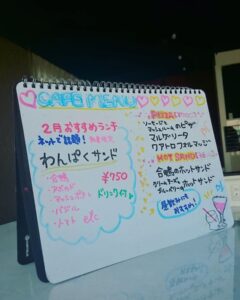 CAFE MENU
2月おすすめランチ
ネットで話題!
わんぱくサンド
・合鴨
・アボカド
・マッシュポテト
・バジル
・トマト etc
¥950
ドリンク付
PIZZA
ソーセージと
マッシュルームのピザ
マルゲリータ
クアトロフォルマッジ
HOT SAND
合鴨のホットサンド
クリームチーズと
ブルーベリーのホットサンド
昼飲みにも
おすすめ